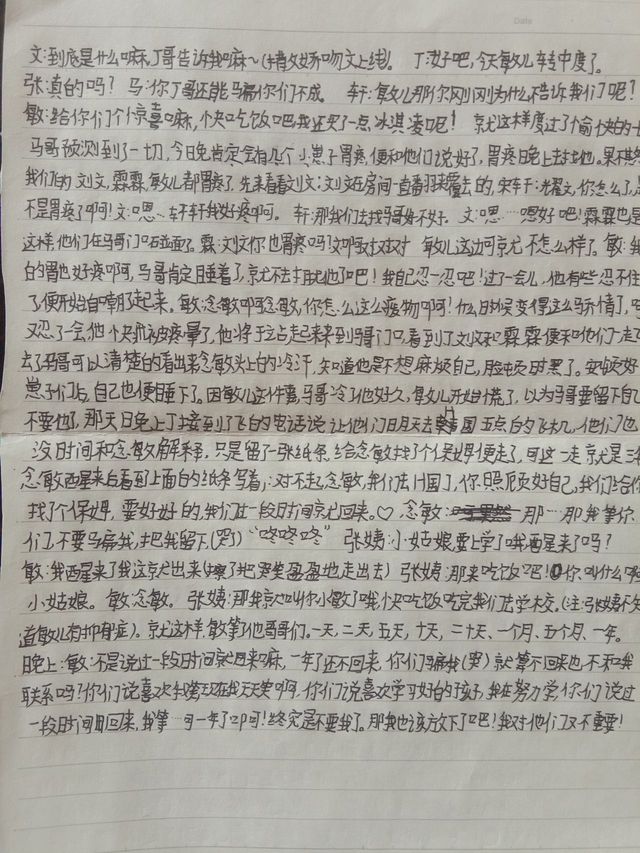 Date
文:到底是什么嘛,丁哥告诉我嘛~(撒娇吻文上线). 丁:好吧,今天敏儿转中度了。
张:真的吗? 马:你丁哥还能骗你们不成。 轩:敏儿那你刚刚为什么不告诉我们呢?
敏:给你们个惊喜嘛,快吃饭吧我还买了点冰淇凌呢! 就这样度过了愉快的一
马哥预测到了一切,今日晚肯定会有几个小崽子胃疼,便和他们说好了,胃疼晚上去找他。果不其然
我们的刘文,霖霖,敏儿都胃疼了,先来看看刘文:刘文在房间一直翻来覆去的,宋:轩:耀文,你怎么了,是
不是胃疼了啊!文:嗯…轩轩我好疼啊。 轩:那我们去找马哥好不好。 文:嗯…嗯好吧!霖霖也是
这样,他们在马哥门口碰面了。霖:刘文你也胃疼吗?文:啊对对对 敏儿这边可就不怎么样了。敏:我
的胃也好疼啊,马哥肯定睡着了,就不去打扰他了吧!我自己忍一忍吧!过了一会儿,他有些忍不住
了便开始自嘲了起来。敏:念敏啊念敏,你怎么这么废物啊!什么时候变得这么矫情了,
又忍了一会,他快抗被疼晕了,他终于站起来来到马哥门口,看到了刘文和霖霖便和他们一起
去了马哥可以清楚的看出来念敏头上的冷汗,知道他是不想麻烦自己,脸顿时黑了。安顿好
崽子们后,自己也便睡下了。因敏儿这件事,马哥冷了他好久,敏儿开始慌了,以为马哥要留下自己
不要他了,那天日晚上丁接到了飞的电话说让他们日月天去H国五点的飞机,他们也
没时间和念敏解释,只是留了一张纸条,给念敏找了个保姆便走了,可这一走就是三年
念敏西星来后看到上面的纸条写着,:对不起念敏,我们去H国了,你照顾好自己,我们给你
找了个保姆,要好好的,我们过一段时间就回来。♡ 念敏: 那…那我等你
们,不要骗我,把我留下(哭) “咚咚咚” 张姨:小姑娘要上学了哦西星来了吗?
敏:我西星来了我这就出来(擦了把哭笑盈盈地走出去) 张姨:那来吃饭吧!你叫什么啊
小姑娘。 敏:念敏。 张姨:那我就叫你小敏了哦,快吃饭吃完我们去学校。(注:张姨不知
道敏儿有抑郁症)。就这样,敏等了他哥哥们,一天,二天,五天,十天,二十天、一个月、五个月、一年。
日晚上:敏:不是说过一段时间就回来嘛,一年了还不回来,你们骗我(哭)就算不回来也不和我
联系吗?你们说喜欢我笑现在我天天笑啊,你们说喜欢学习好的孩子,我在努力学,你们说过
一段时间即回来,我等…可一年了啊可!终究是不要我了。那我也该放下了吧!我对他们又不重要!